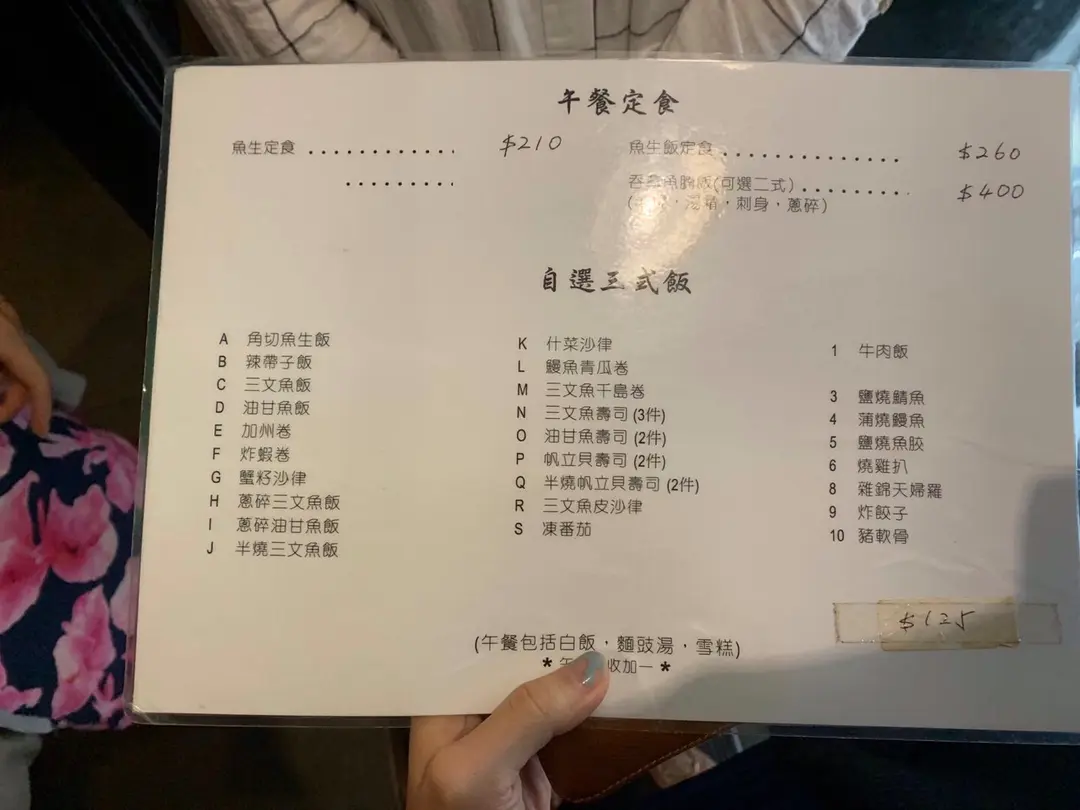 午餐定食
魚生定食 $210
魚生飯定食 $260
吞拿魚腩飯(可選二式) $400
刺身，蔥碎)
自選三式飯
A 角切魚生飯
B 辣帶子飯
C 三文魚飯
D 油甘魚飯
E 加州卷
F 炸蝦卷
G 蟹籽沙律
H 蔥碎三文魚飯
I 蔥碎油甘魚飯
J 半燒三文魚飯
K 什菜沙律
L 鰻魚青瓜卷
M 三文魚千島卷
N 三文魚壽司 (3件)
O 油甘魚壽司 (2件)
P 帆立貝壽司 (2件)
Q 半燒帆立貝壽司 (2件)
R 三文魚皮沙律
S 凍番茄
1 牛肉飯
3 鹽燒鯖魚
4 蒲燒鰻魚
5 鹽燒魚胶
6 燒雞扒
8 雜錦天婦羅
9 炸餃子
10 豬軟骨
$125
(午餐包括白飯，麵豉湯，雪糕)
* 收加一 *